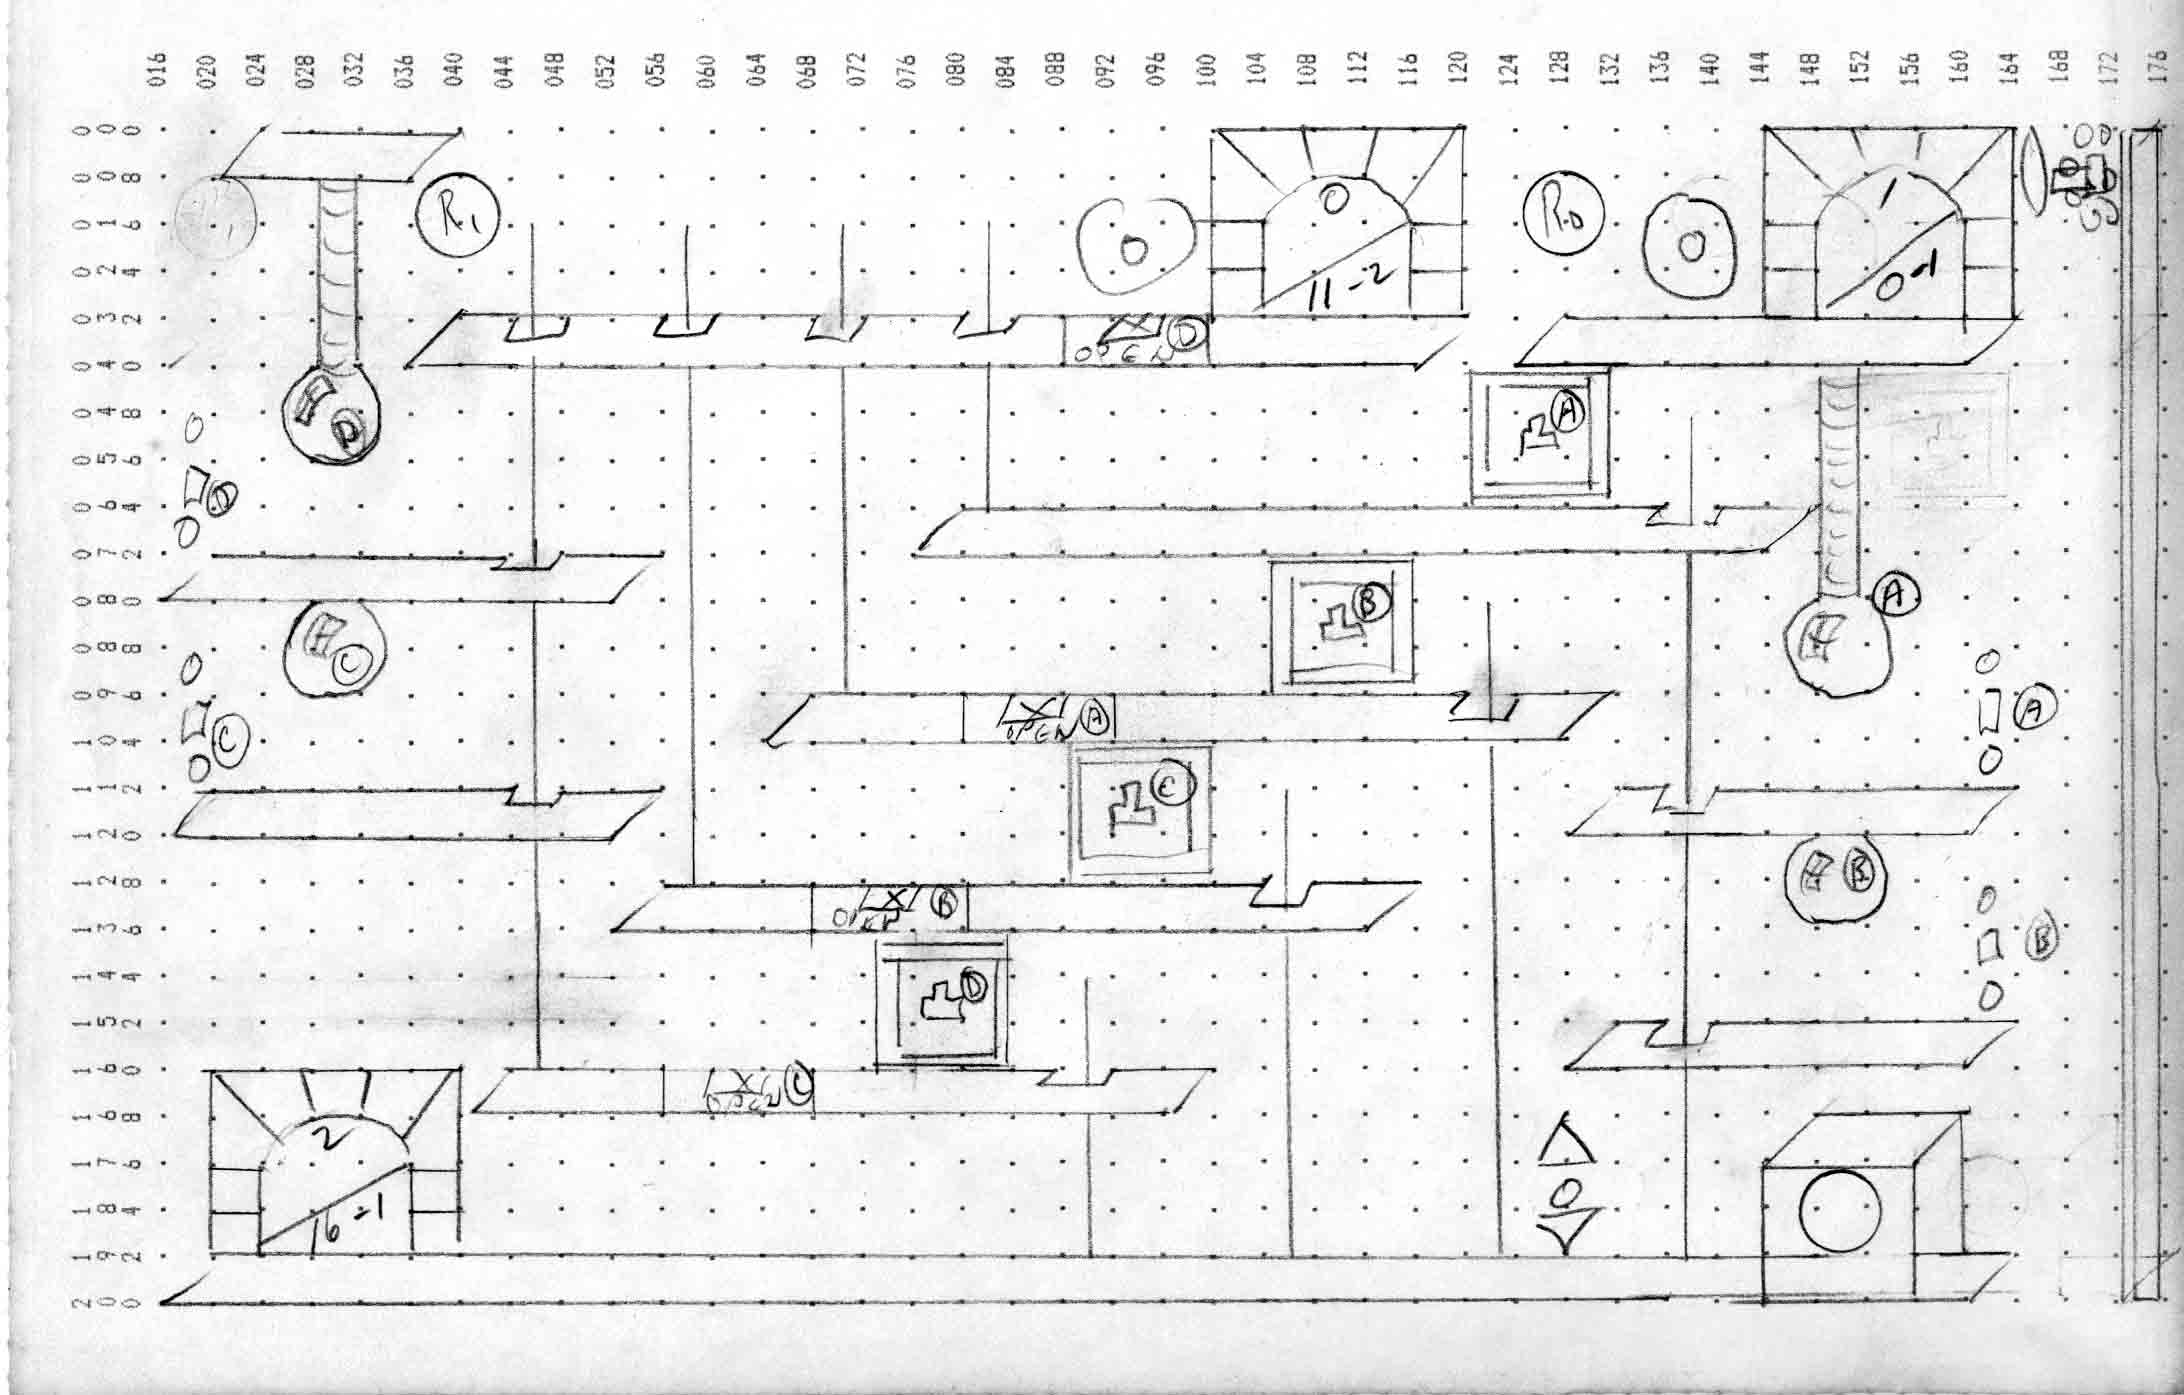 016 020 024 028 032 036 040 044 048 052 056 060 064 068 072 076 080 084 088 092 096 100 104 108 112 116 120 124 128 132 136 140 144 148 152 156 160 164 168 172 176
000
008
016
024
032
040
048
056
064
072
080
088
096
104
112
120
128
136
144
152
160
168
176
184
192
200
R1
0
0
11-2
R0
0
1
0-1
OPEN D
D
A
D
B
A
C
OPEN A
A
C
C
OPEN B
B
B
D
OPEN C
2
16-1
0